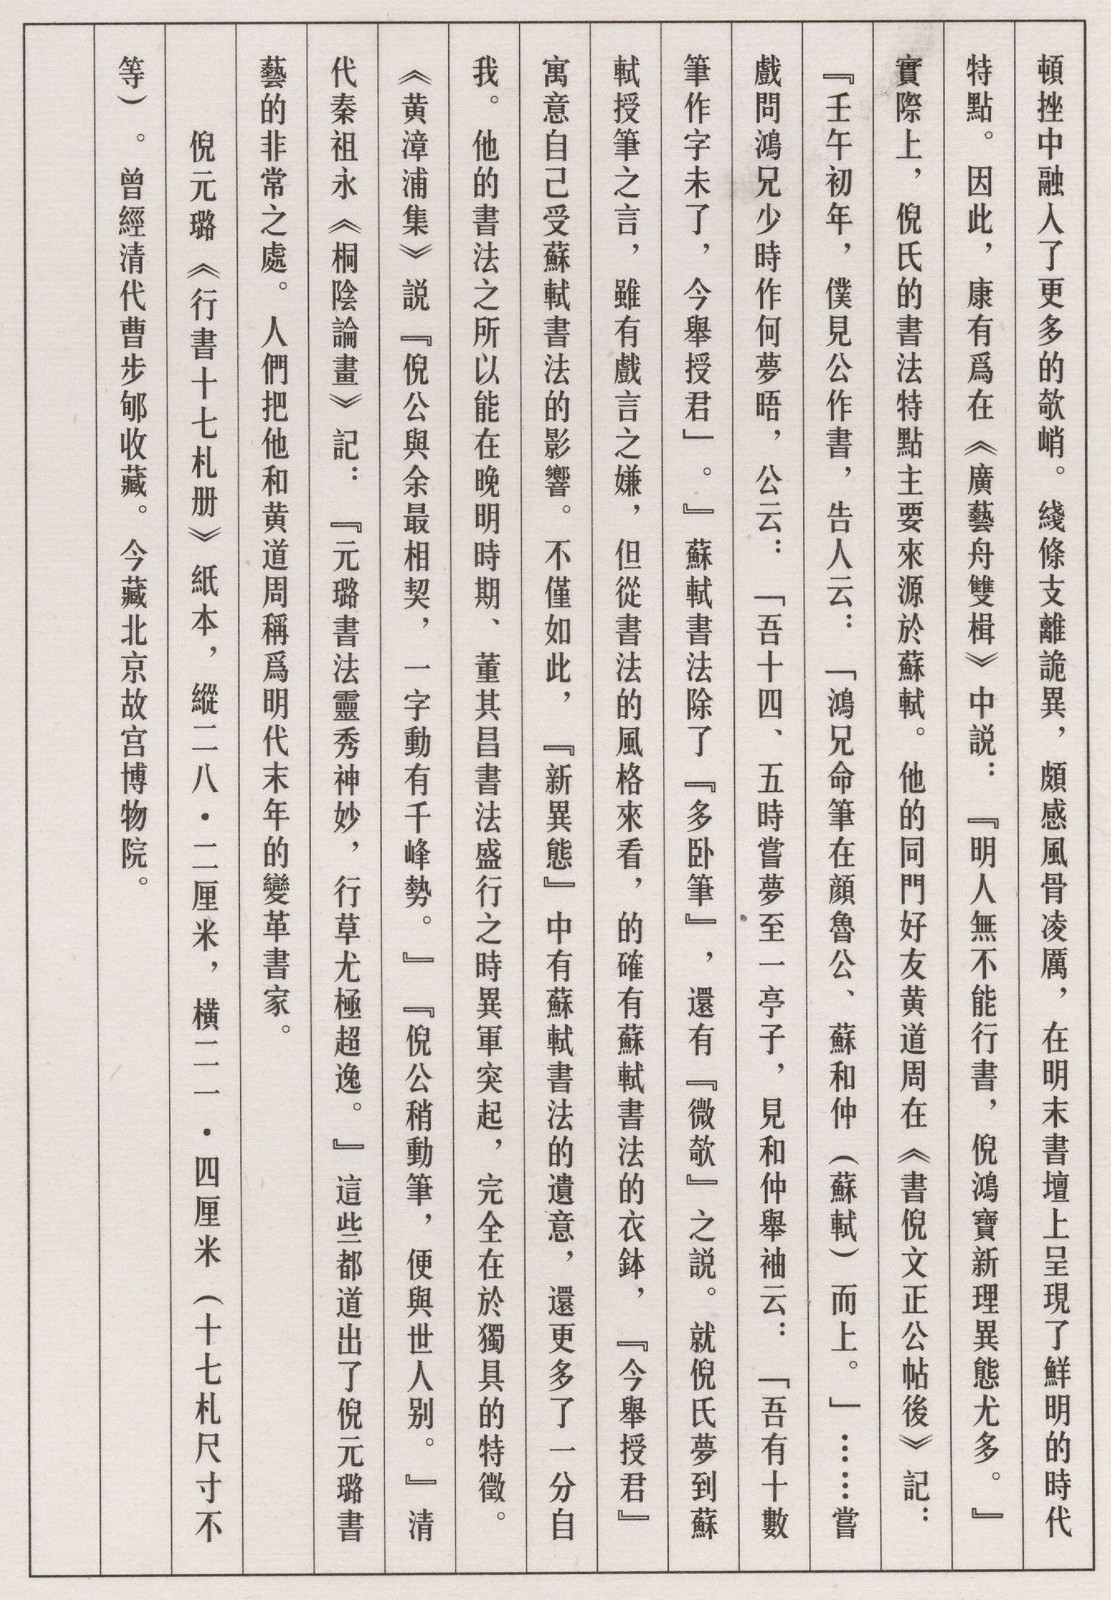 頓挫中融入了更多的欹峭。綫條支離詭異，頗感風骨凌厲，在明末書壇上呈現了鮮明的時代
特點。因此，康有爲在《廣藝舟雙楫》中説：『明人無不能行書，倪鴻寶新理異態尤多。』
實際上，倪氏的書法特點主要來源於蘇軾。他的同門好友黄道周在《書倪文正公帖後》記：
『壬午初年，僕見公作書，告人云：「鴻兄命筆在顔魯公、蘇和仲（蘇軾）而上。」……嘗
戲問鴻兄少時作何夢晤，公云：「吾十四、五時嘗夢至一亭子，見和仲舉袖云：「吾有十數
筆作字未了，今舉授君」。』蘇軾書法除了『多卧筆』，還有『微欹』之説。就倪氏夢到蘇
軾授筆之言，雖有戲言之嫌，但從書法的風格來看，的確有蘇軾書法的衣鉢，『今舉授君』
寓意自己受蘇軾書法的影響。不僅如此，『新異態』中有蘇軾書法的遺意，還更多了一分自
我。他的書法之所以能在晚明時期、董其昌書法盛行之時異軍突起，完全在於獨具的特徵。
《黄漳浦集》説『倪公與余最相契，一字動有千峰勢。』『倪公稍動筆，便與世人别。』清
代秦祖永《桐陰論畫》記：『元璐書法靈秀神妙，行草尤極超逸。』這些都道出了倪元璐書
藝的非常之處。人們把他和黄道周稱爲明代末年的變革書家。
倪元璐《行書十七札册》紙本，縱二八·二厘米，横二一·四厘米（十七札尺寸不
等）。曾經清代曹步郇收藏。今藏北京故宫博物院。